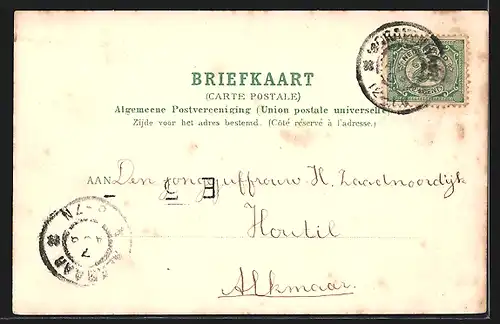 BRIEFKAART
(CARTE POSTALE)
Algemeene Postvereeniging (Union postale universelle)
Zijde voor het adres bestemd. (Côté réservé à l'adresse.)
AAN Den jongejuffrouw H. Zaadnoordijk
Houtil
Alkmaar.
ALKMAAR
7